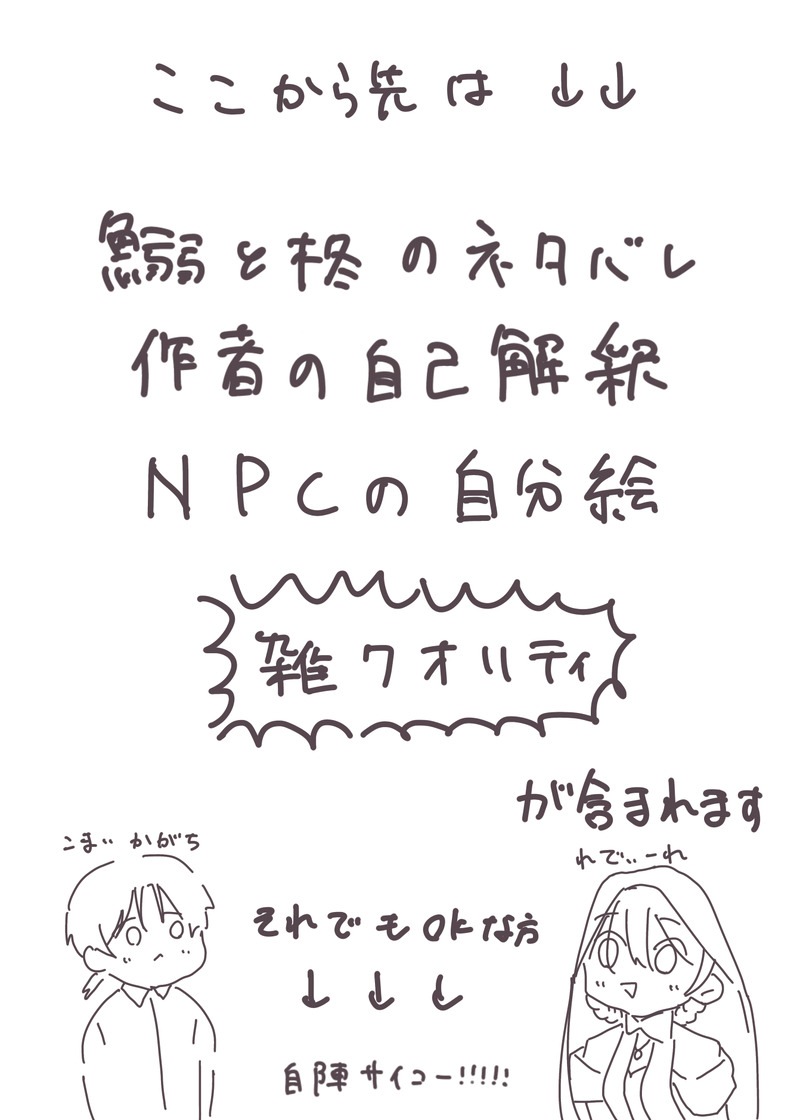 ここから先は ↓↓
鰯と柊のネタバレ
作者の自己解釈
NPCの自分絵
雑クオリティ
が含まれます
こま‥ かがち
れでぃーれ
それでもOKな方
↓ ↓ ↓
自陣サイコー!!!!!